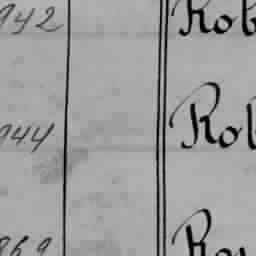 942 Rob
944 Rob
869 Ro